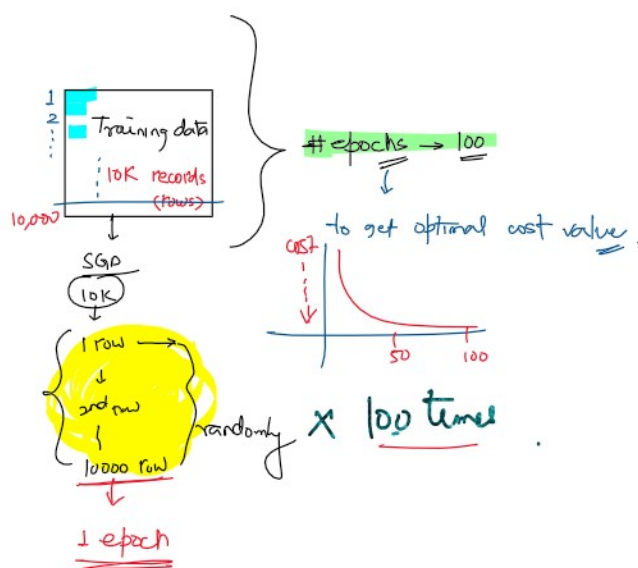 1
2
Training data
10K records
(rows)
10,000
SGD
10K
1 row
2nd row
10000 row
randomly
1 epoch
# epochs → 100
to get optimal cost value.
cost
50
100
X 100 times.